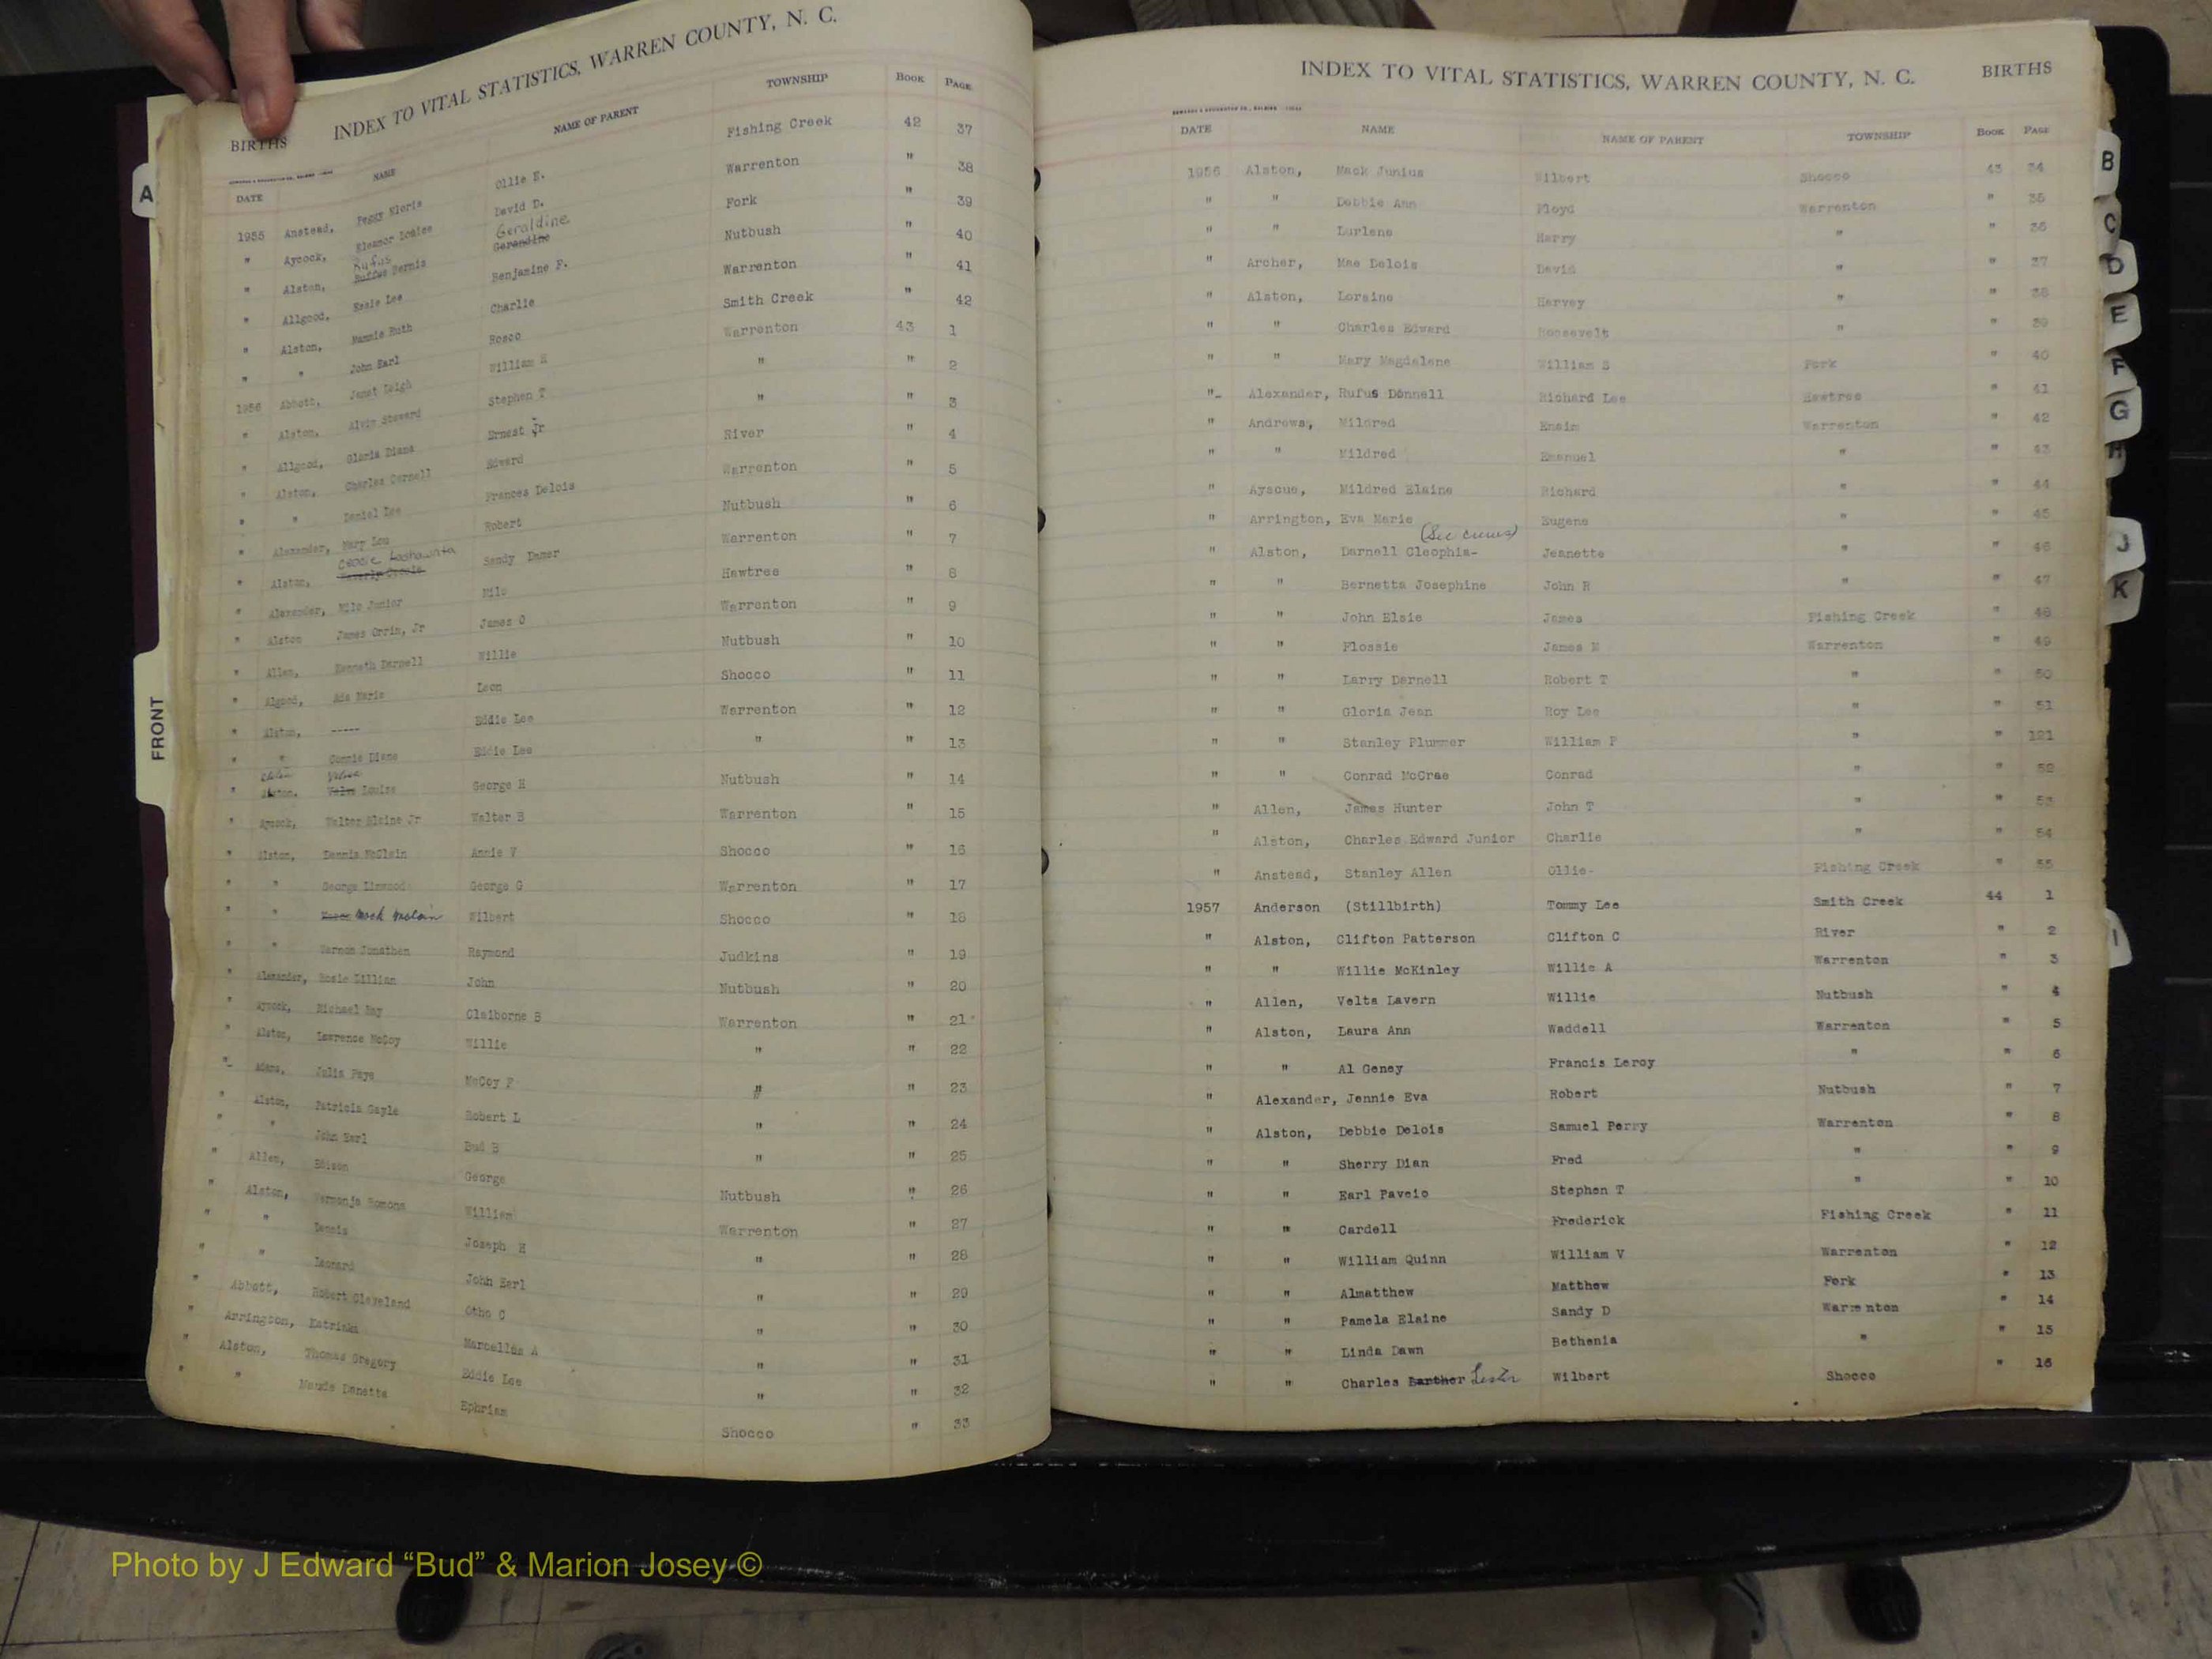 INDEX TO VITAL STATISTICS, WARREN COUNTY, N. C.
BIRTHS
DATE NAME NAME OF PARENT TOWNSHIP BOOK PAGE
1955 Anstead, Peggy Gloria Ollie E. Fishing Creek 42 37
" Aycock, Eleanor Louise David D. Warrenton " 38
" Alston, Rufus Bernis Geraldine Fork " 39
" Allgood, Essie Lee Benjamine F. Nutbush " 40
" Alston, Mammie Ruth Charlie Warrenton " 41
" " John Earl Rosco Smith Creek " 42
1956 Abbott, Janet Leigh William H Warrenton 43 1
" Alston, Alvin Steward Stephen T " " 2
" Allgood, Gloria Diane Ernest Jr " " 3
" Alston, Charles Cornell Edward River " 4
" " Daniel Lee Frances Delois Warrenton " 5
" Alexander, Mary Lou Robert Nutbush " 6
" Alston, Sandy Damer Warrenton " 7
" Alexander, Milo Junior Milo Hawtree " 8
" Alston James Orrin, Jr James O Warrenton " 9
" Allen, Kenneth Darnell Willie Nutbush " 10
" Algood, Ada Marie Leon Shocco " 11
" Alston, ----- Eddie Lee Warrenton " 12
" " Connie Diane Eddie Lee " " 13
" Louise George H Nutbush " 14
" Aycock, Walter Blaine Jr Walter B Warrenton 15
" Alston, Dennis McClein Annie V Shocco " 16
" " George Linwood George G Warrenton " 17
" " Mack Wilbert Shocco " 18
" " Vernon Jonathan Raymond Judkins " 19
" Alexander, Rosie Lillian John Nutbush " 20
" Aycock, Michael Ray Claiborne B Warrenton " 21
" Alston, Lawrence McCoy Willie " " 22
" Adams, Julia Faye McCoy F " " 23
" Alston, Patricia Gayle Robert L " " 24
" " John Earl Bud B " " 25
" Allen, Edison George Nutbush " 26
" Alston, Romona William Warrenton " 27
" " Dennis Joseph H " " 28
" " Leonard John Earl " " 29
" Abbott, Robert Cleveland Otho C " " 30
" Arrington, Katrinka Marcellus A " " 31
" Alston, Thomas Gregory Eddie Lee " " 32
" " Maude Danette Ephriam Shocco " 33
INDEX TO VITAL STATISTICS, WARREN COUNTY, N. C. BIRTHS
DATE NAME NAME OF PARENT TOWNSHIP BOOK PAGE
1956 Alston, Mack Junius Wilbert Shocco 43 34
" " Debbie Ann Floyd Warrenton " 35
" " Lurlene Harry " " 36
" Archer, Mae Delois David " " 37
" Alston, Loraine Harvey " " 38
" " Charles Edward Roosevelt " " 39
" " Mary Magdalene William S Fork " 40
" Alexander, Rufus Donnell Richard Lee Hawtree " 41
" Andrews, Mildred Ensim Warrenton " 42
" " Mildred Emanuel " " 43
" Ayscue, Mildred Elaine Richard " " 44
" Arrington, Eva Marie Eugene " " 45
" Alston, Darnell Cleophis- Jeanette " " 46
" " Bernetta Josephine John R " " 47
" " John Elsie James Fishing Creek " 48
" " Flossie James M Warrenton " 49
" " Larry Darnell Robert T " " 50
" " Gloria Jean Roy Lee " " 51
" " Stanley Plummer William P " " 121
" " Conrad McCrae Conrad " " 52
" Allen, James Hunter John T " " 53
" Alston, Charles Edward Junior Charlie " " 54
" Anstead, Stanley Allen Ollie- Fishing Creek " 55
1957 Anderson (Stillbirth) Tommy Lee Smith Creek 44 1
" Alston, Clifton Patterson Clifton C River " 2
" " Willie McKinley Willie A Warrenton " 3
" Allen, Velta Lavern Willie Nutbush " 4
" Alston, Laura Ann Waddell Warrenton " 5
" " Al Geney Francis Leroy " " 6
" Alexander, Jennie Eva Robert Nutbush " 7
" Alston, Debbie Delois Samuel Perry Warrenton " 8
" " Sherry Dian Fred " " 9
" " Earl Paveio Stephen T " " 10
" " Cardell Frederick Fishing Creek " 11
" " William Quinn William V Warrenton " 12
" " Almatthew Matthew Fork " 13
" " Pamela Elaine Sandy D Warrenton " 14
" " Linda Dawn Bethenia " " 15
" " Charles Barther Lester Wilbert Shocco " 16
A
FRONT
B
C
D
E
F
G
H
J
K
I
Photo by J Edward “Bud” & Marion Josey ©